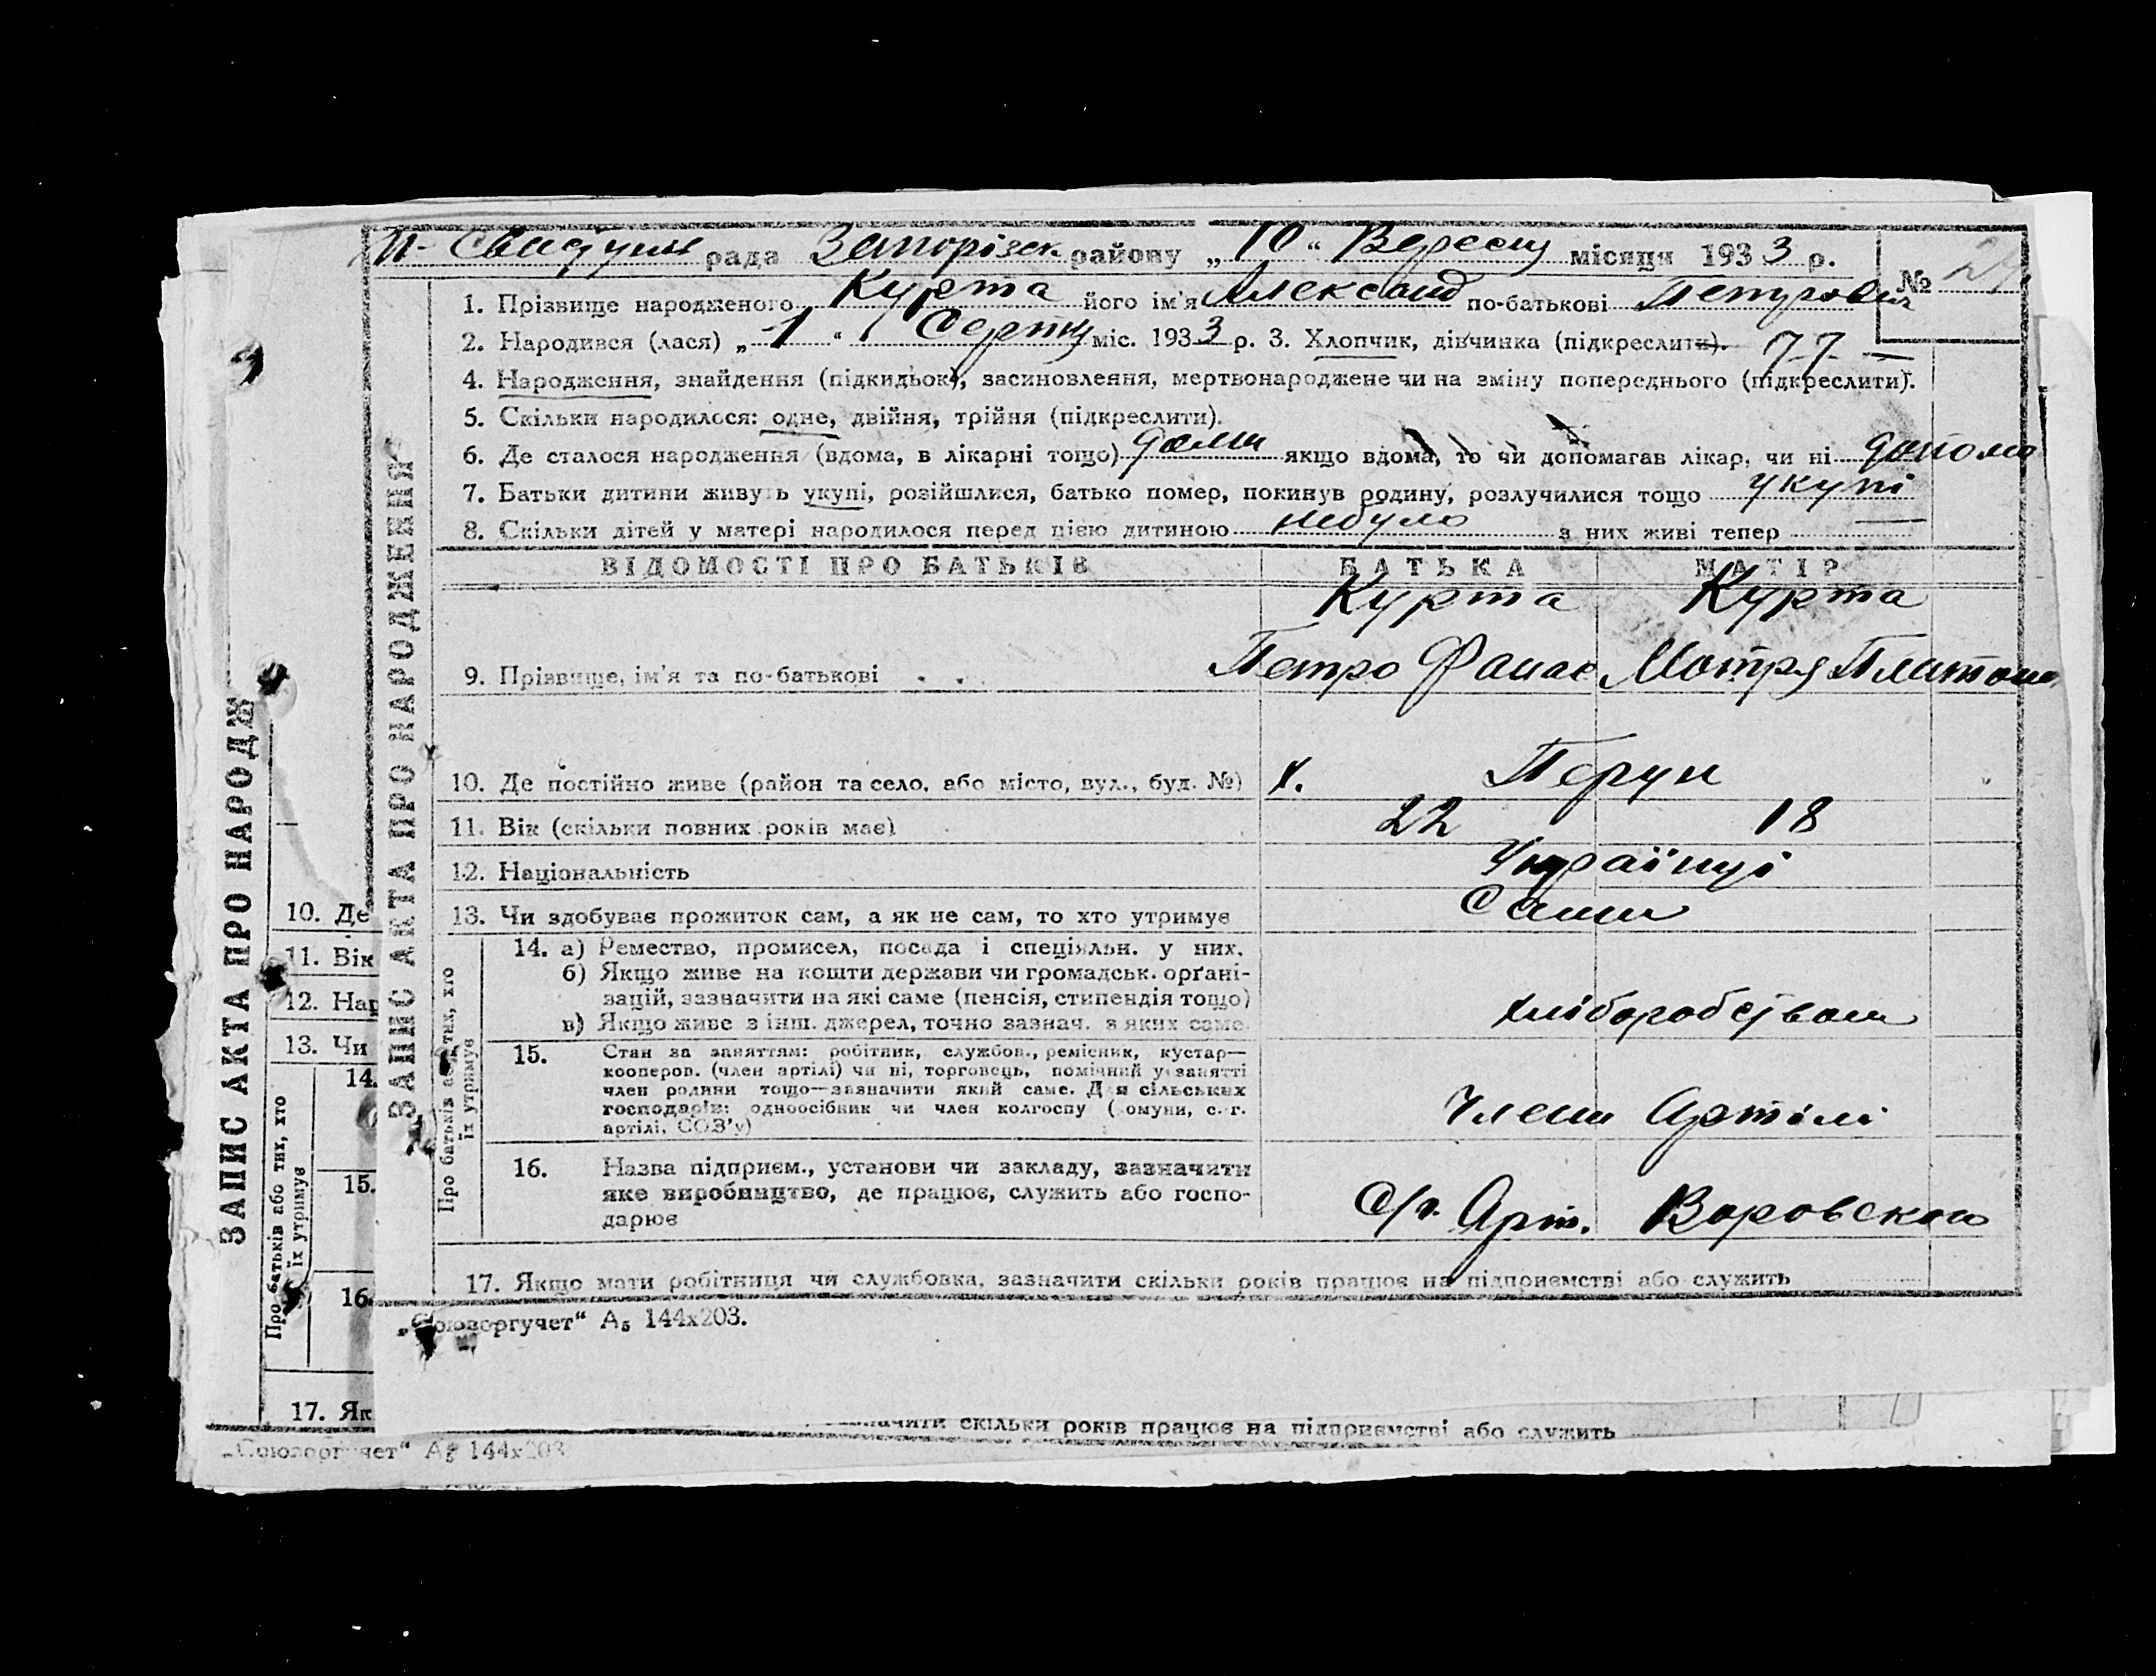 П-Свистунів рада Запорізьк. району „10“ Вересня місяця 1933 р.
№ 24
1. Прізвище народженого Курта його ім'я Александ по-батькові Петрович
2. Народився (лася) „1“ Серпня міс. 1933 р. 3. Хлопчик, дівчинка (підкреслити). 77 —
4. Народження, знайдення (підкидьок), засиновлення, мертвонароджене чи на зміну попереднього (підкреслити).
5. Скільки народилося: одне, двійня, трійня (підкреслити).
6. Де сталося народження (вдома, в лікарні тощо) дома якщо вдома, то чи допомагав лікар, чи ні
7. Батьки дитини живуть укупі, розійшлися, батько помер, покинув родину, розлучилися тощо укупі
8. Скільки дітей у матері народилося перед цією дитиною небуло з них живі тепер —
ВІДОМОСТІ ПРО БАТЬКІВ БАТЬКА МАТІР
Курта Курта
9. Прізвище, ім'я та по-батькові . . Петро Фанас Мотря Платон
10. Де постійно живе (район та село, або місто, вул., буд. №) х. Перун
11. Вік (скільки повних років має) 22 18
12. Національність Українці
13. Чи здобуває прожиток сам, а як не сам, то хто утримує Сами
14. а) Ремество, промисел, посада і спеціяльн. у них.
б) Якщо живе на кошти держави чи громадськ. орґані-
зацій, зазначити на які саме (пенсія, стипендія тощо)
в) Якщо живе з інш. джерел, точно зазнач. з яких саме.
хліборобством
15. Стан за заняттям: робітник, службов., ремісник, кустар—
кооперов. (член артілі) чи ні, торговець, помічний у занятті
член родини тощо—зазначити який саме. Для сільських
господарів: одноосібник чи член колгоспу (комуни, с.-г.
артілі, СОЗ'у)
Члени Артілі
16. Назва підприєм., установи чи закладу, зазначити
яке виробництво, де працює, служить або госпо-
дарює
С/г. Арт. Воровского
17. Якщо мати робітниця чи службовка, зазначити скільки років працює на підприємстві або служить
„Союзоргучет“ А₅ 144х203.
ЗАПИС АКТА ПРО НАРОДЖЕННЯ
Про батьків або тих, хто
їх утримує
ЗАПИС АКТА ПРО НАРОДЖ
10. Де
11. Вік
12. Нац
13. Чи
14.
15.
16.
Про батьків або тих, хто
їх утримує
17. Як
значити скільки років працює на підприємстві або служить
„Союзоргучет“ А₅ 144х203